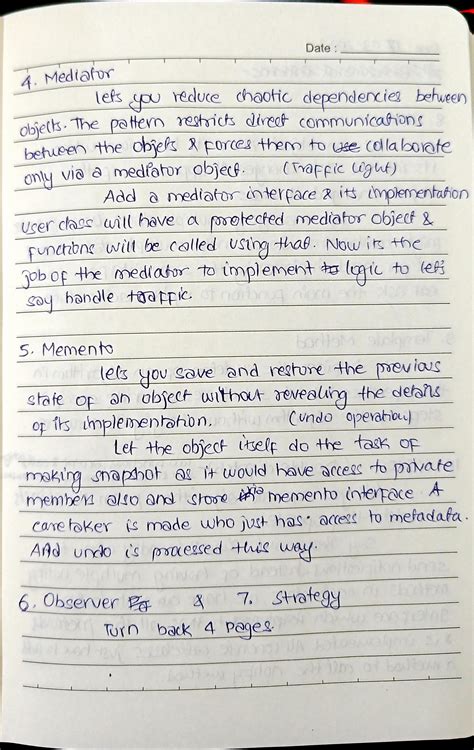 Date :
4. Mediator
lets you reduce chaotic dependencies between
objects. The pattern restricts direct communications
between the objects & forces them to use collaborate
only via a mediator object. (Traffic Light)
Add a mediator interface & its implementation
user class will have a protected mediator object &
functions will be called using that. Now its the
job of the mediator to implement to logic to lets
say handle traffic.
5. Memento
lets you save and restore the previous
state of an object without revealing the details
of its implementation. (undo operation)
Let the object itself do the task of
making snapshot as it would have access to private
members also and store memento interface. A
caretaker is made who just has access to metadata.
And undo is processed this way.
6. Observer & 7. Strategy
Turn back 4 pages.